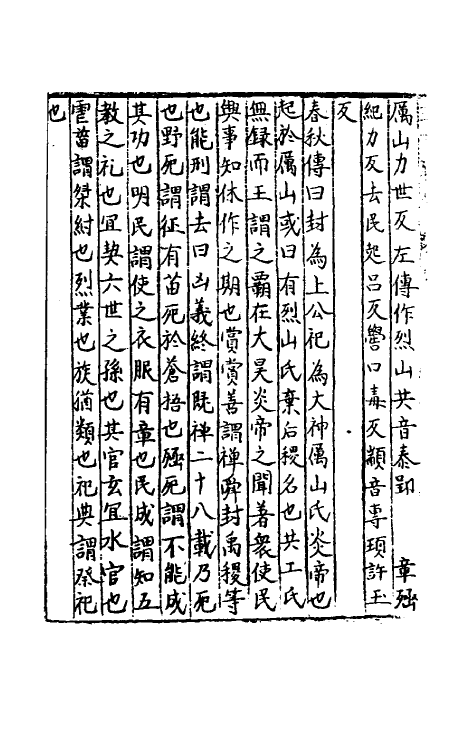 厲山力世反左傳作烈山共音恭郢　章殛
紀力反去民起吕反嚳口毒反顓音專頊許玉
反
春秋傳曰封為上公祀為大神厲山氏炎帝也
起於厲山或曰有烈山氏棄后稷名也共工氏
無録而王謂之霸在大昊炎帝之間著衆使民
興事知休作之期也賞賞善謂禪舜封禹稷等
也能刑謂去四凶義終謂既禪二十八載乃死
也野死謂征有苗死於蒼梧也殛死謂不能成
其功也明民謂使之衣服有章也民成謂知五
教之礼也冥契六世之孫也其官玄冥水官也
虐菑謂桀紂也烈業也族猶類也祀典謂祭祀
也